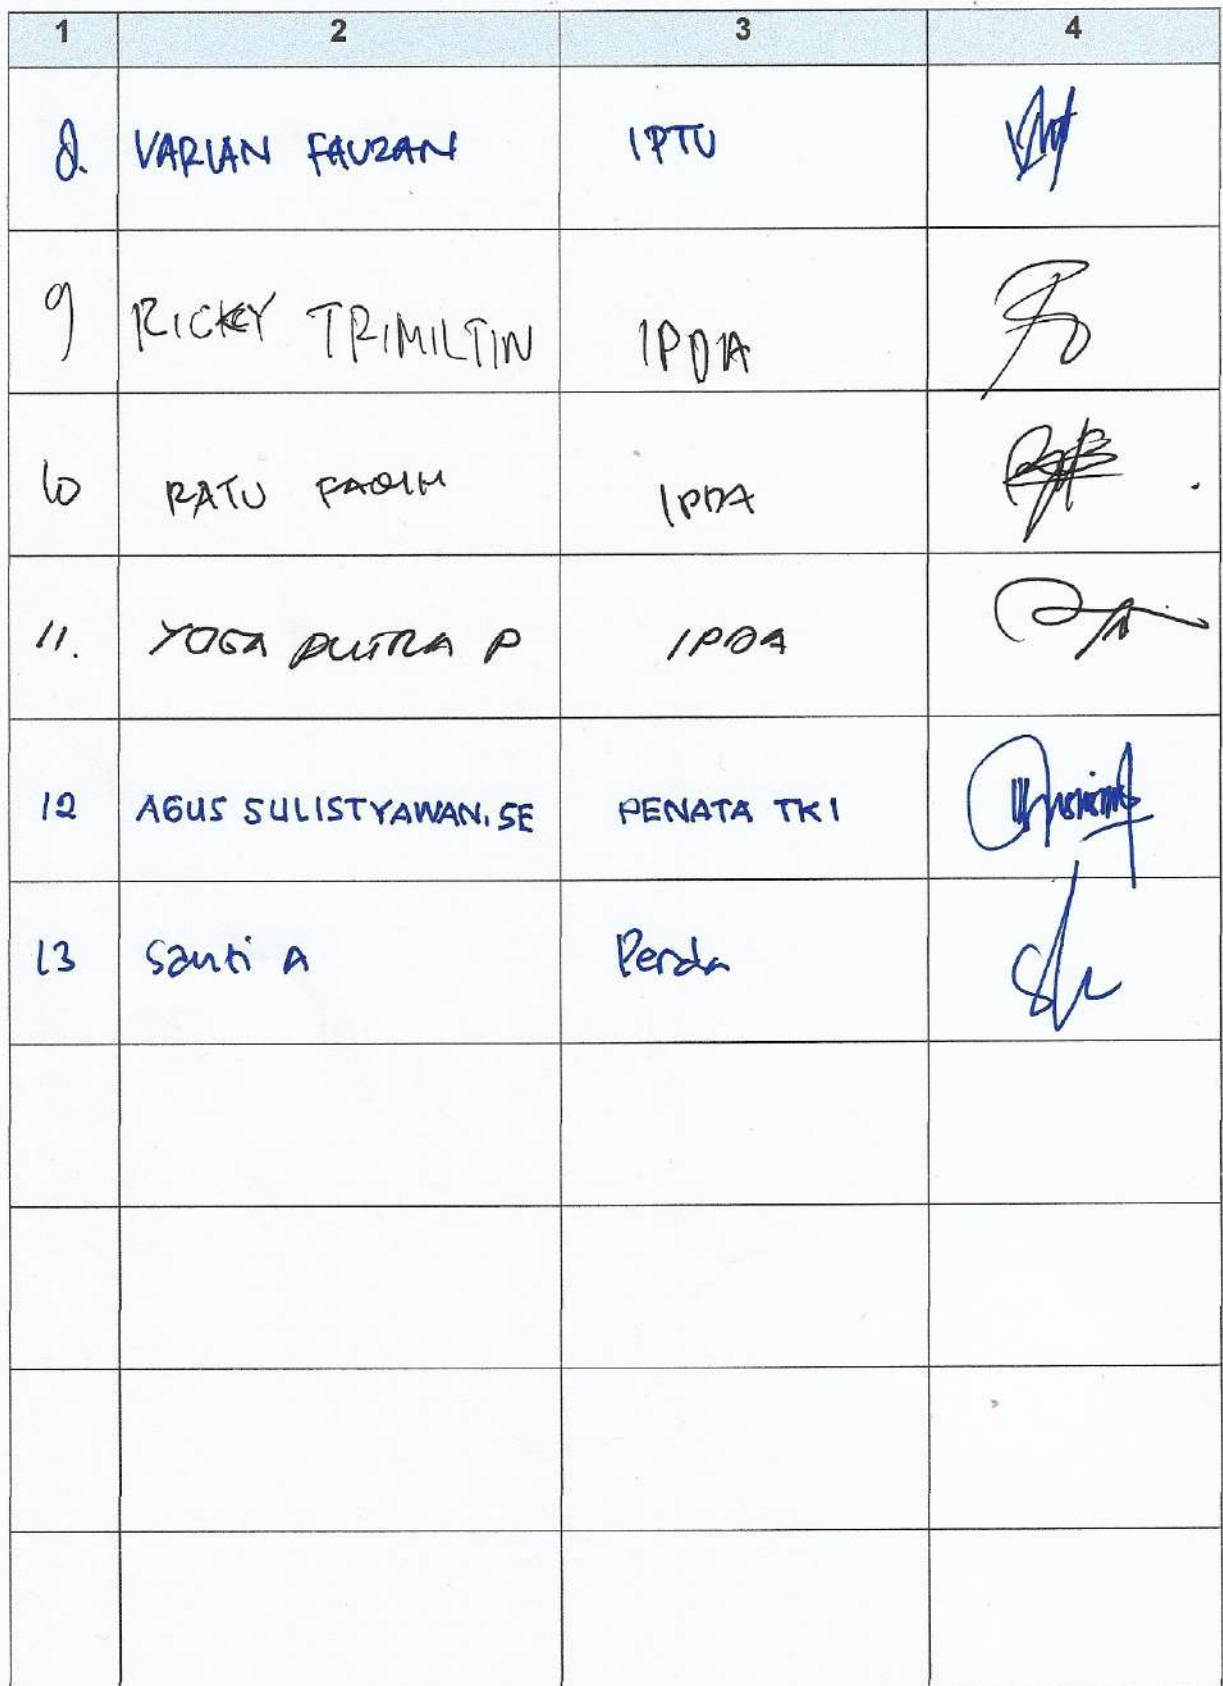 1 2 3 4
8. VARIAN FAUZAN IPTU
9 RICKY TRIMILTIN IPDA
10 RATU FAQIH IPDA
11. YOGA PUTRA P IPDA
12 AGUS SULISTYAWAN, SE PENATA TK I
13 Santi A Penda